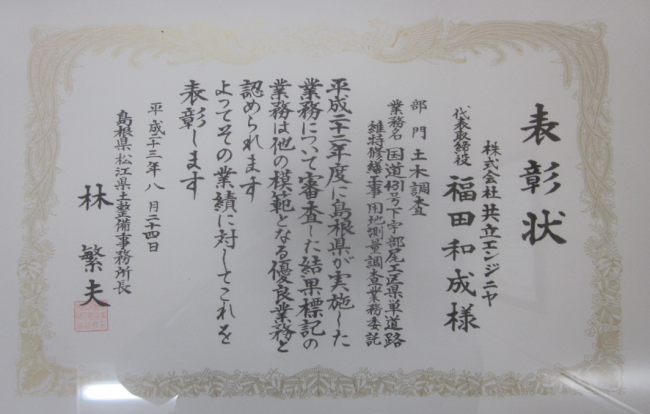 表彰状
株式会社 共立エンジニヤ
代表取締役 福田和成様
部門 土木調査
業務名 国道431号下宇部尾工区県単道路
維持修繕工事用地測量調査業務委託
平成二十二年度に島根県が実施した
業務について審査した結果標記の
業務は他の模範となる優良業務と
認められます
よってその業績に対してこれを
表彰します
平成二十三年八月二十四日
島根県松江県土整備事務所長
林 繁夫